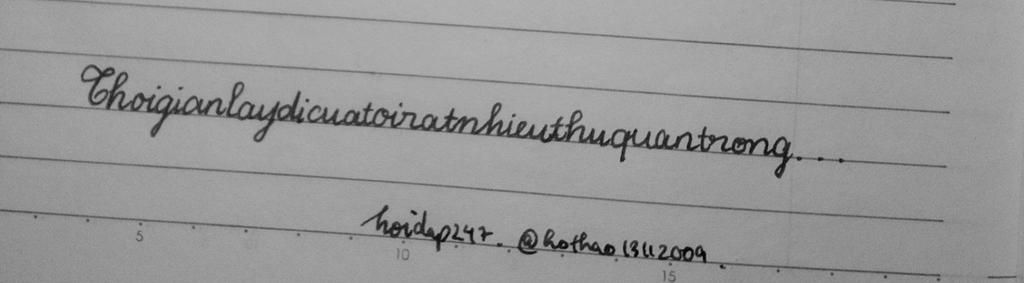 Thoigianlaydicuatoiratnhieuthuquantrong...
hoidap247. @hothao13112009.
5
10
15